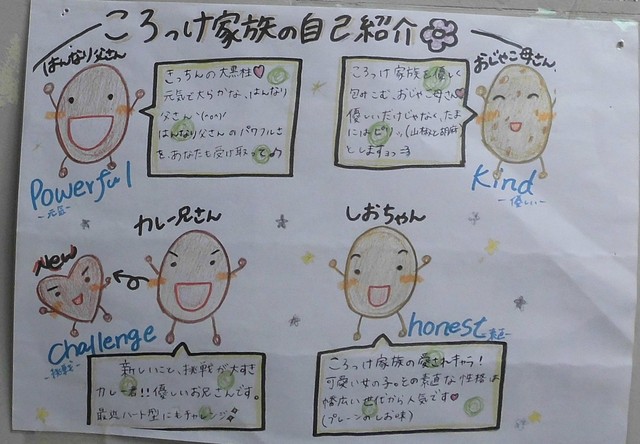 ころっけ家族の自己紹介
はんなり父さん
きっちんの大黒柱♡
元気で大らかな、はんなり
父さんヽ(^o^)/
はんなり父さんのパワフルさ
を、あなたも受け取って
Powerful
-元気-
おじゃこ母さん
ころっけ家族を優しく
包みこむ、おじゃこ母さん♥
優しいだけじゃなく、たま
にはピリッ(山椒と胡麻)
としますョっ
Kind
-優しい-
カレー兄さん
New
Challenge
-挑戦-
新しいこと、挑戦が大すき
カレー君!!優しいお兄さんです。
最近ハート型にもチャレンジ
しおちゃん
honest
素直-
ころっけ家族の愛されキャラ!
可愛い女の子。その素直な性格は
幅広い世代から人気です♥
(プレーンのしお味)